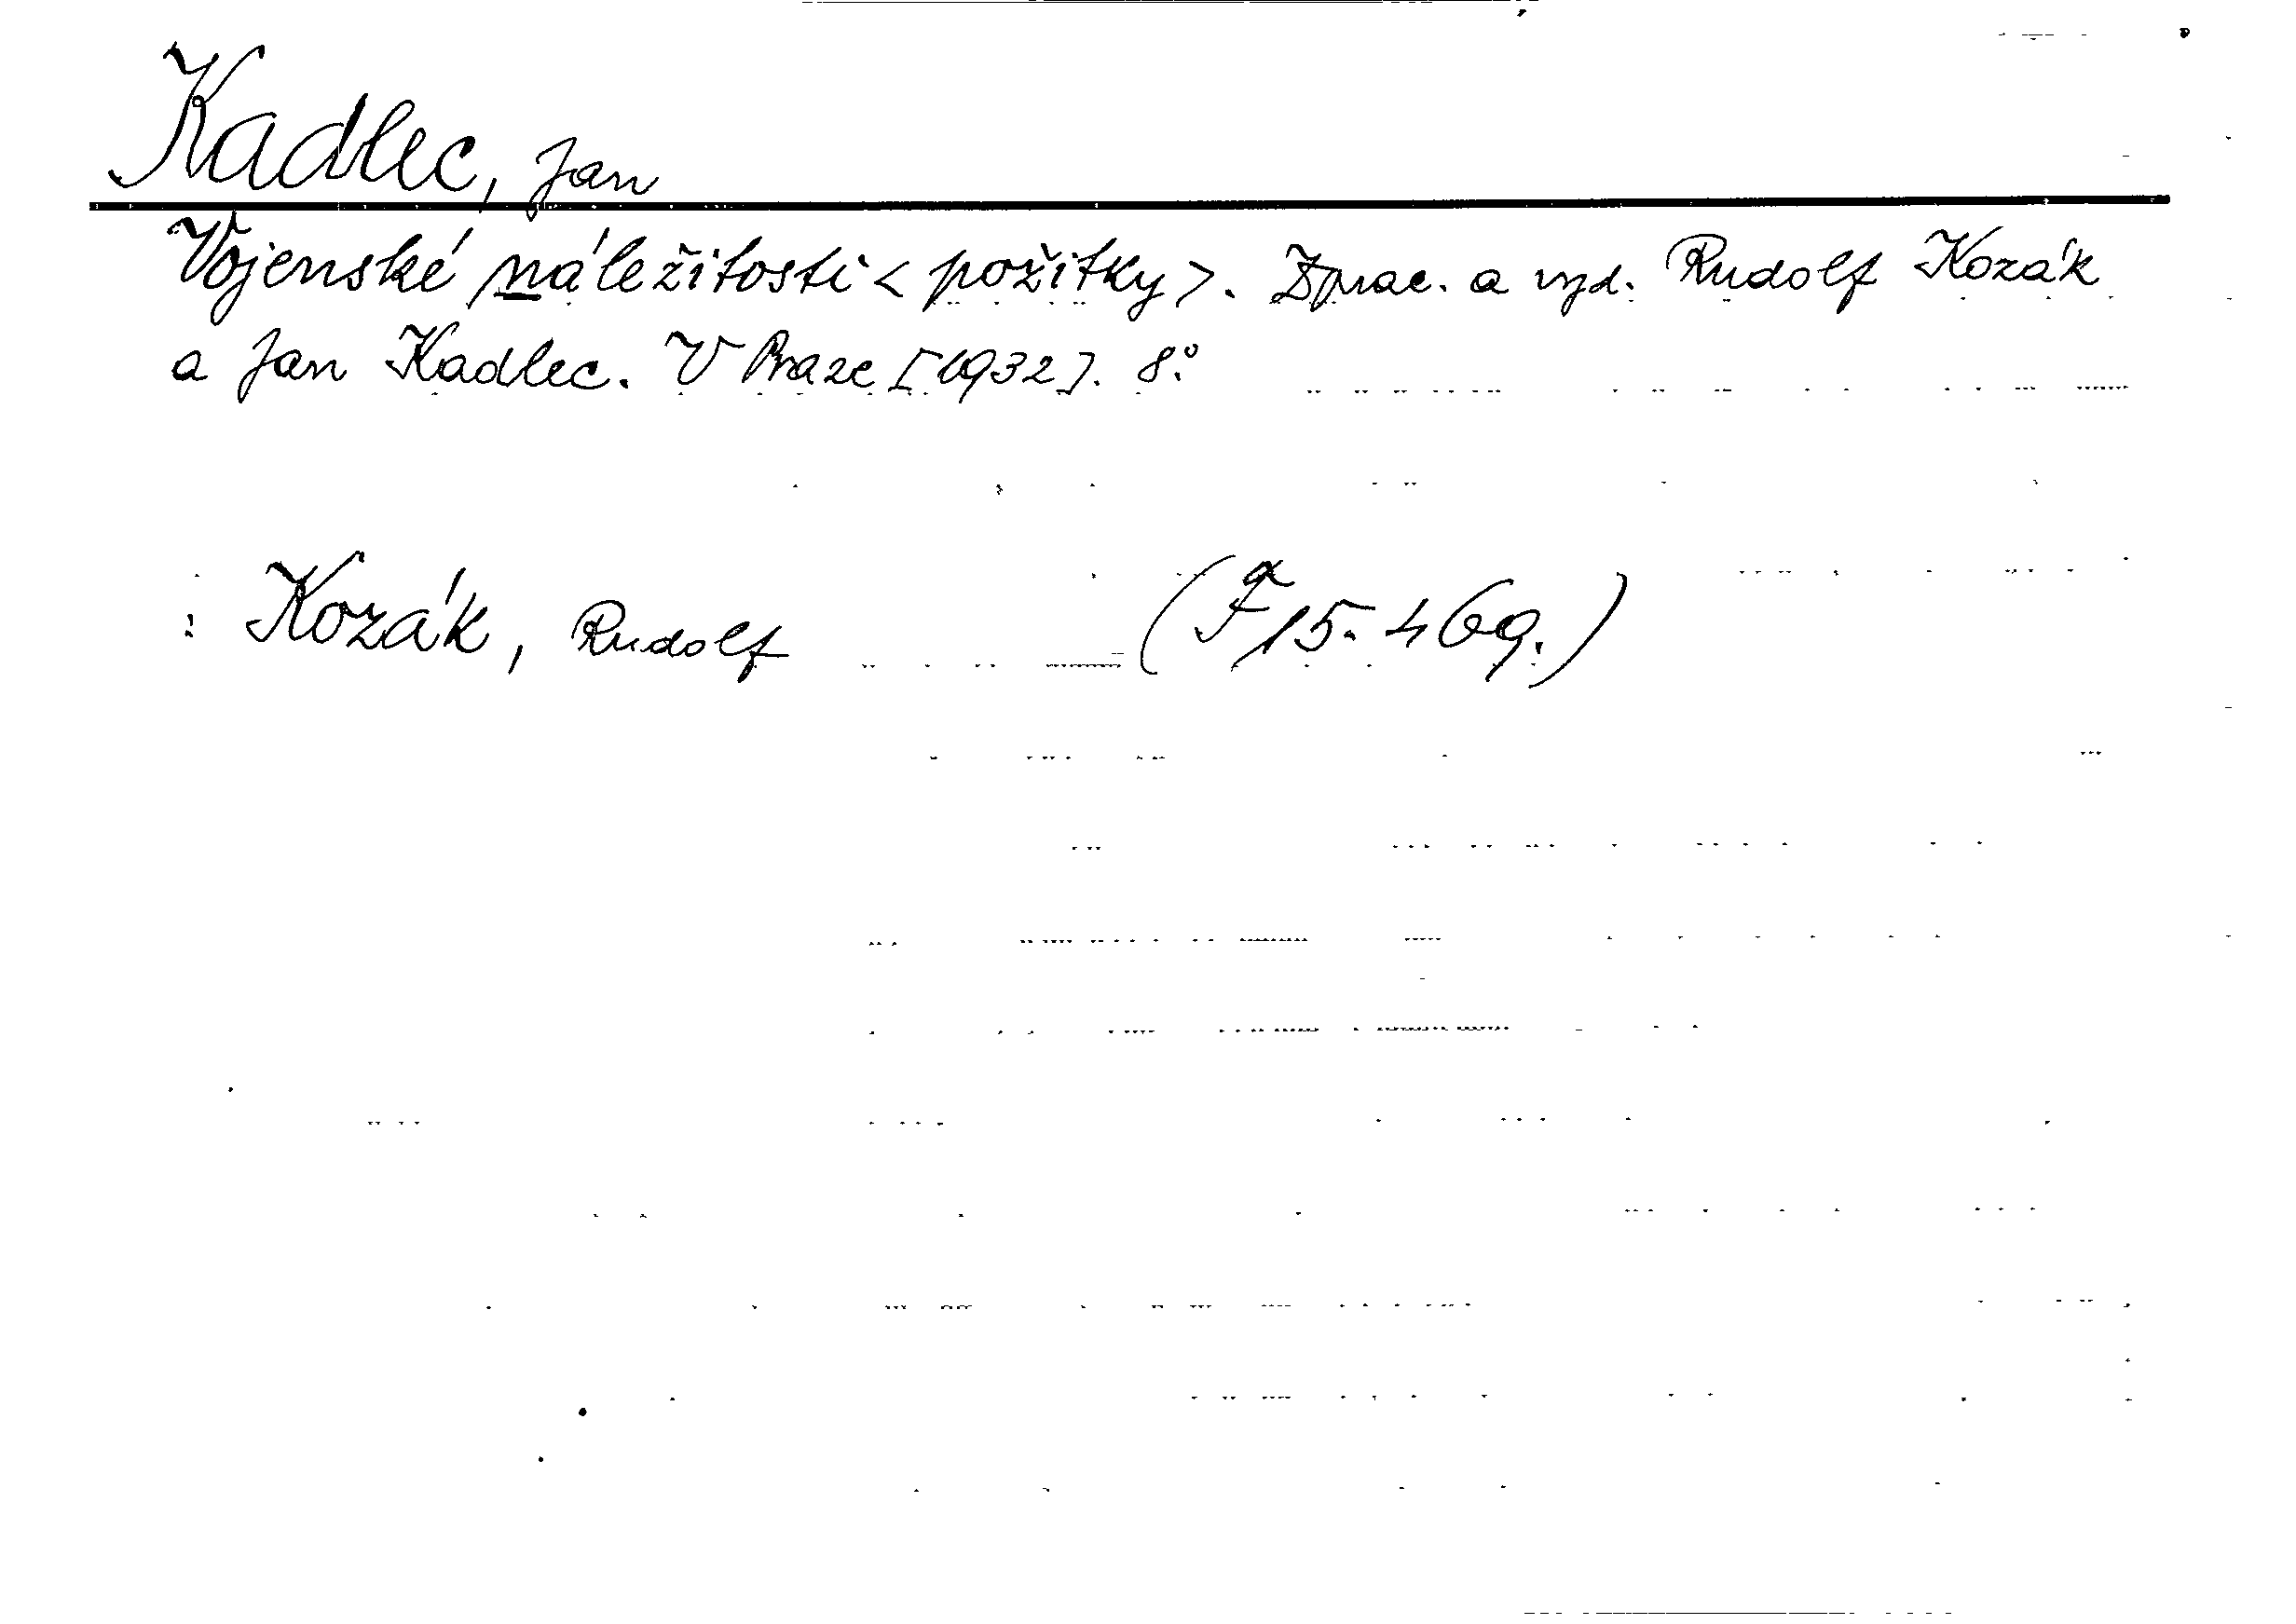 Kadlec, Jan
Vojenské náležitosti < požitky >. Zprac. a vyd. Rudolf Kozák
a Jan Kadlec. V Praze [1932]. 8.°
: Kozák, Rudolf (Fª 15.469.)